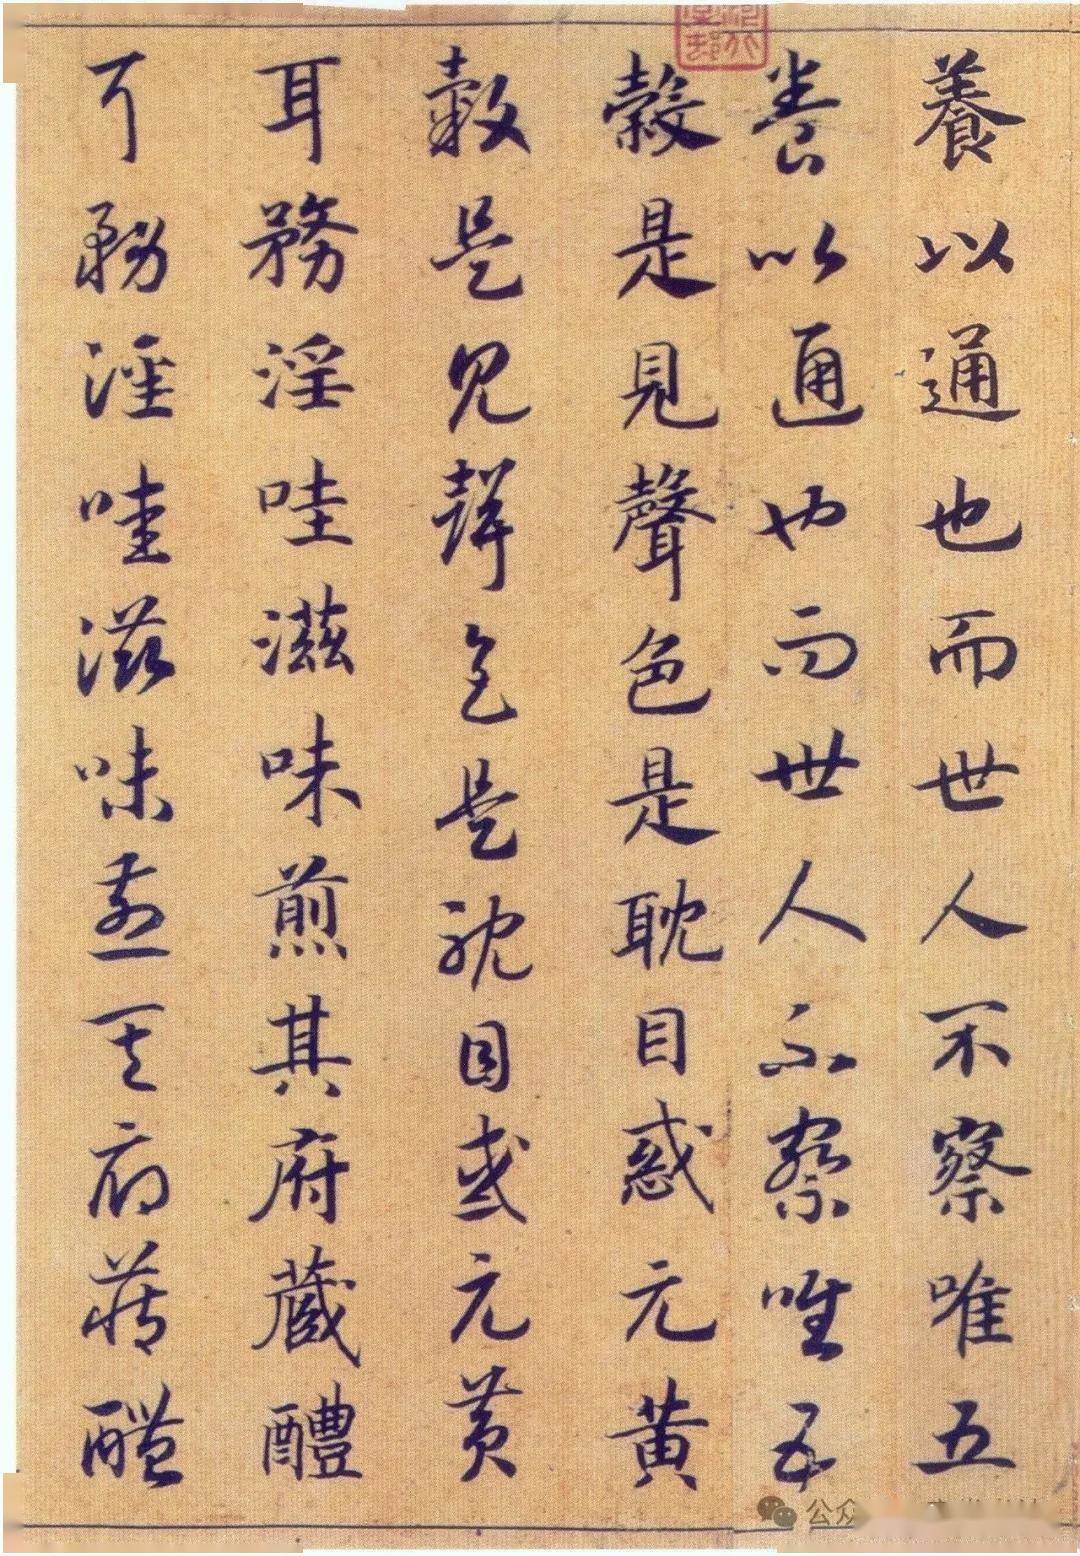 養以通也而世人不察唯五
養以通也而世人不察唯五
穀是見聲色是耽目惑元黄
穀是見聲色是耽目惑元黄
耳務淫哇滋味煎其府蔵醴
耳務淫哇滋味煎其府藏醴
公众